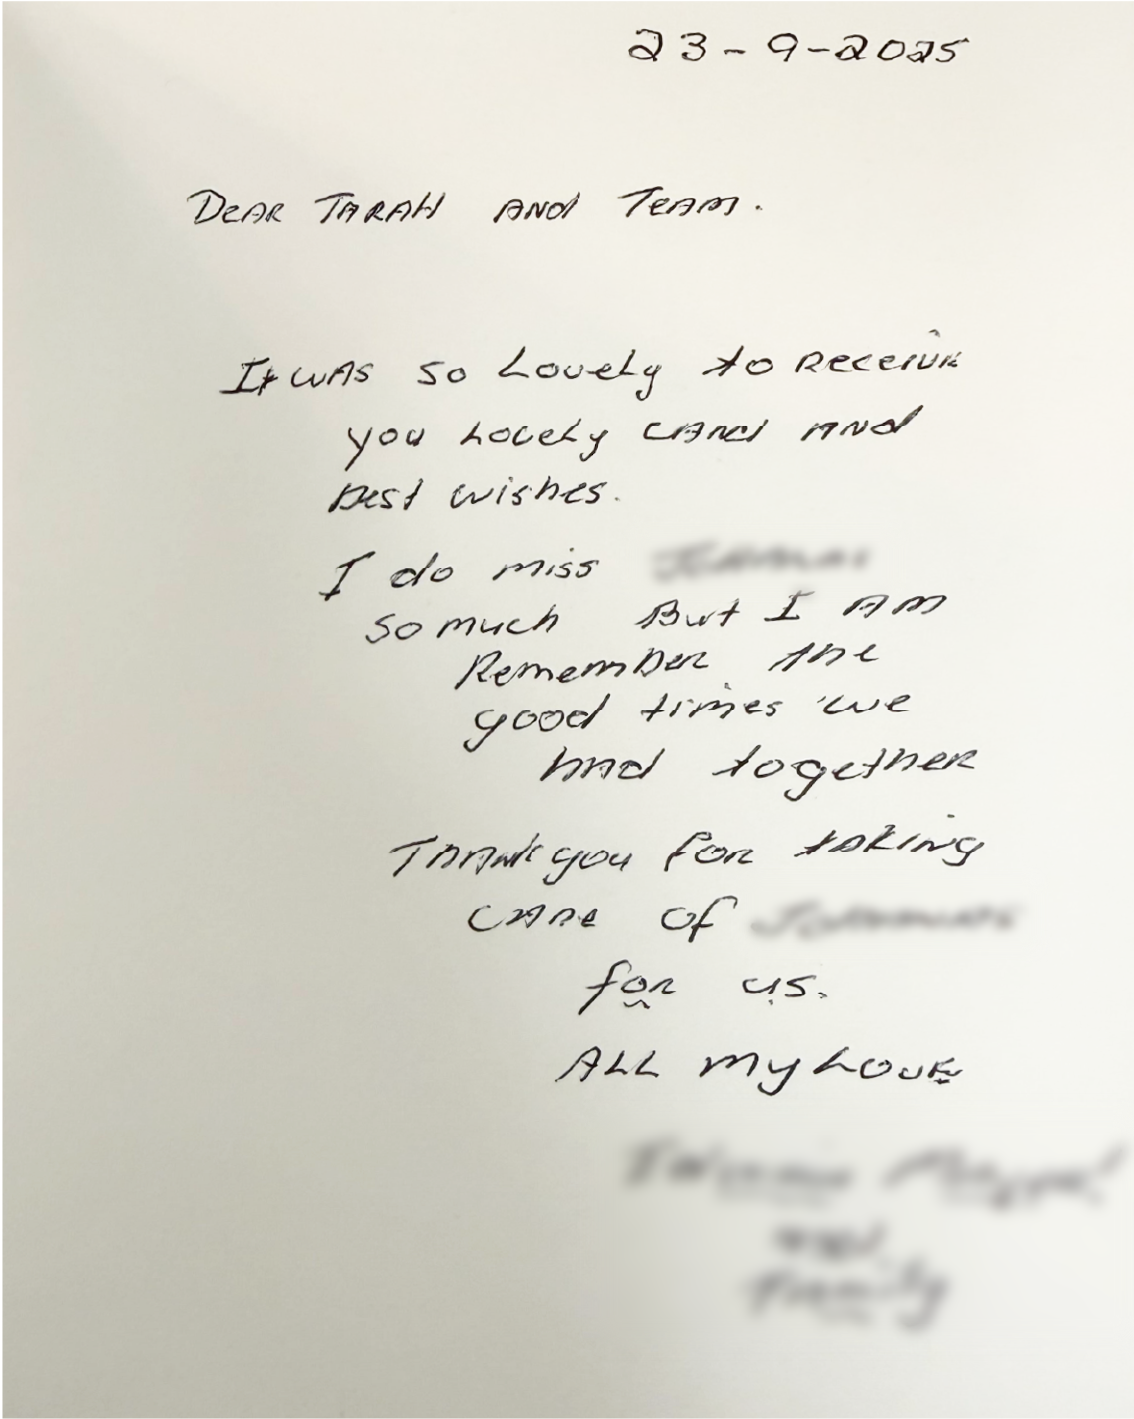 23-9-2025
DEAR TARAH AND TEAM.
It WAS so Lovely to Receive
you Lovely CARD AND
Best wishes.
I do miss
so much But I AM
Remember the
good times we
had together
Thank you for taking
care of
for us.
ALL my Love